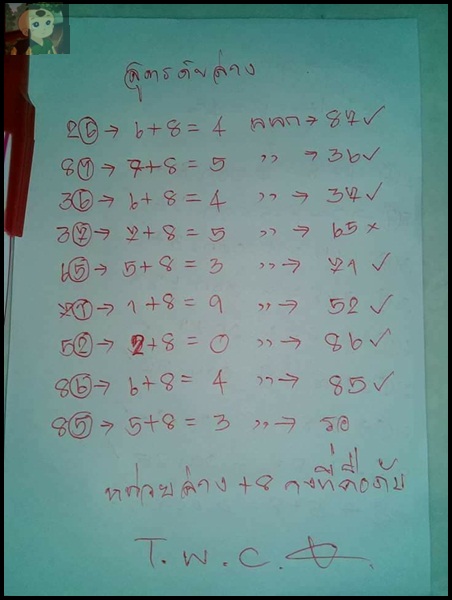 สูตรดับล่าง
26 → 6+8 = 4 ผลออก → 87 ✓
87 → 7+8 = 5 ,, → 36 ✓
36 → 6+8 = 4 ,, → 37 ✓
37 → 7+8 = 5 ,, → 65 ×
65 → 5+8 = 3 ,, → 71 ✓
71 → 1+8 = 9 ,, → 52 ✓
52 → 2+8 = 0 ,, → 86 ✓
86 → 6+8 = 4 ,, → 85 ✓
85 → 5+8 = 3 ,, → รอ
หน่วยล่าง +8 คงที่คือดับ
T.W.C.